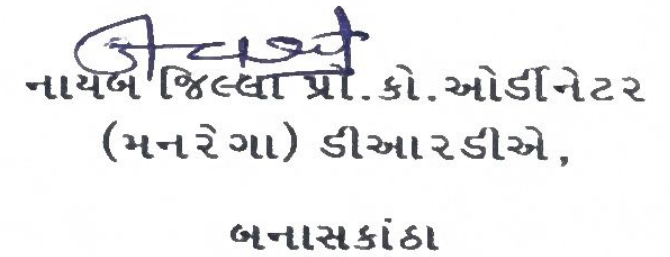 નાયબ જિલ્લા પ્રો.કો.ઓર્ડીનેટર
(મનરેગા) ડીઆરડીએ,
બનાસકાંઠા